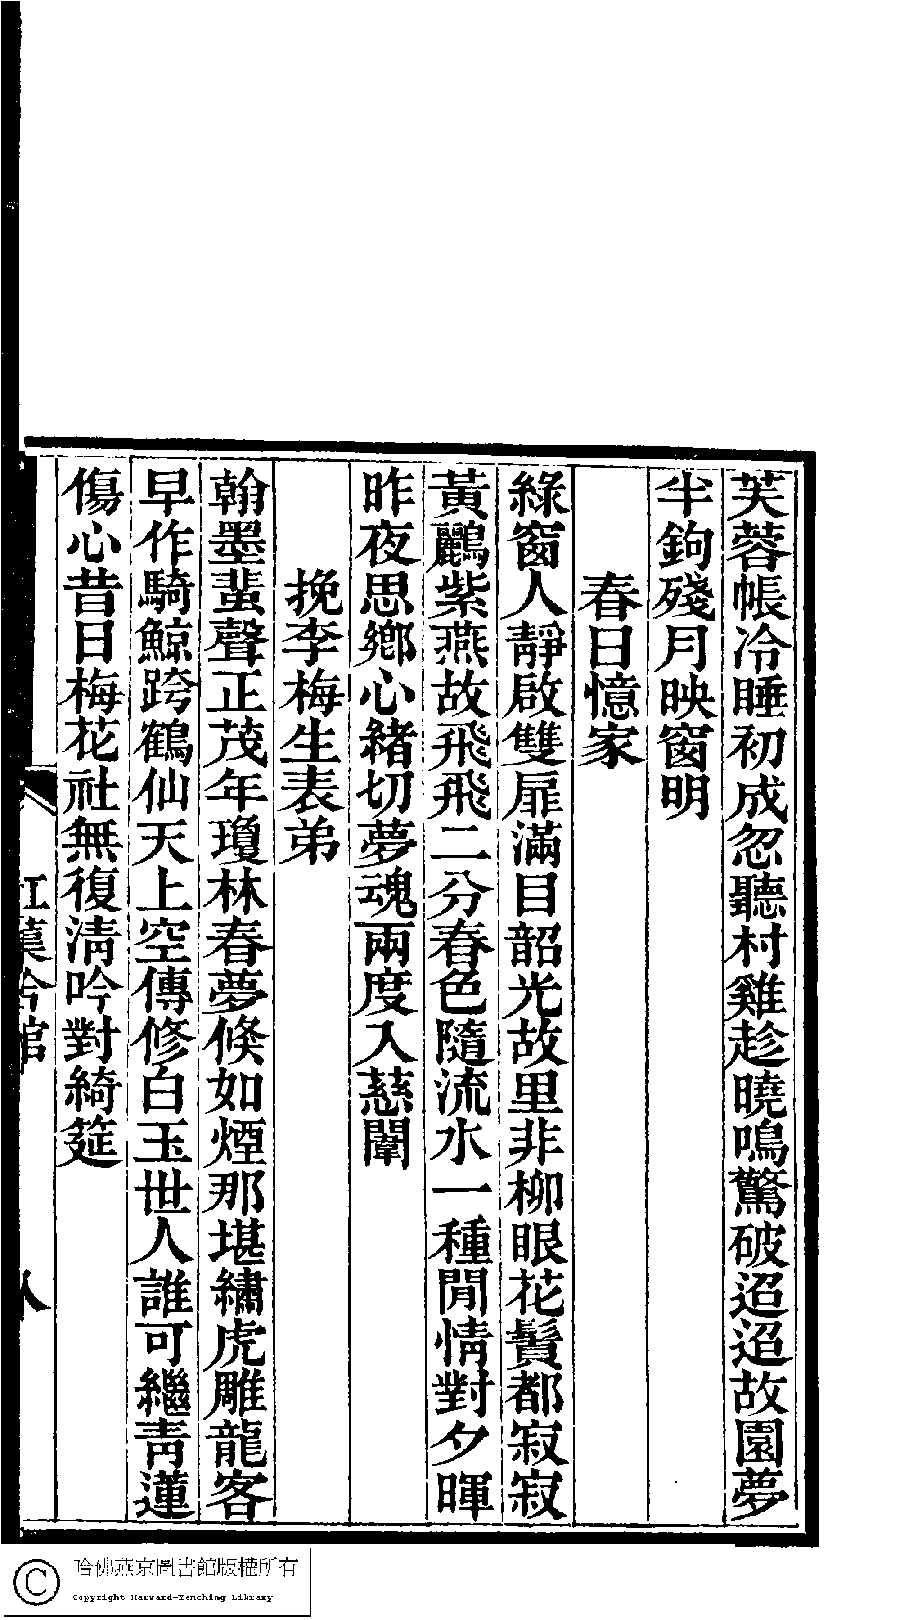 芙蓉帳冷睡初成忽聽村雞趁曉鳴驚破迢迢故園夢
半鉤殘月映窗明
春日憶家
綠窗人靜啟雙扉滿目韶光故里非柳眼花鬚都寂寂
黃鸝紫燕故飛飛二分春色隨流水一種閒情對夕暉
昨夜思鄉心緒切夢魂兩度入慈闈
挽李梅生表弟
翰墨蜚聲正茂年瓊林春夢倏如煙那堪繡虎雕龍客
早作騎鯨跨鶴仙天上空傳修白玉世人誰可繼青蓮
傷心昔日梅花社無復清吟對綺筵
哈佛燕京圖書館版權所有
Copyright Harvard-Yenching Library